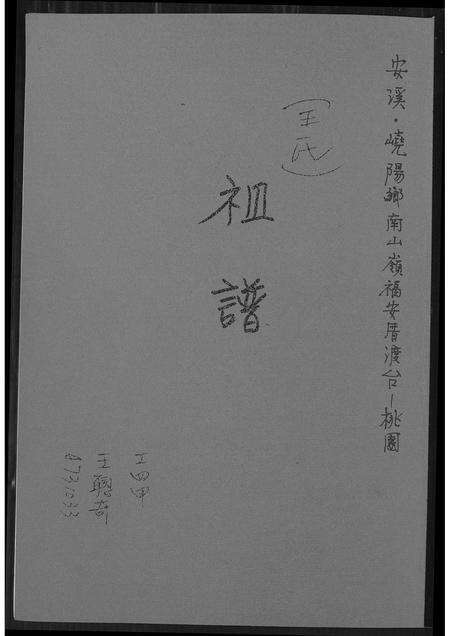 安溪·嶢陽鄉南山嶺福安厝渡台－桃園
(王氏)
祖譜
工四甲
王聰奇
A731033